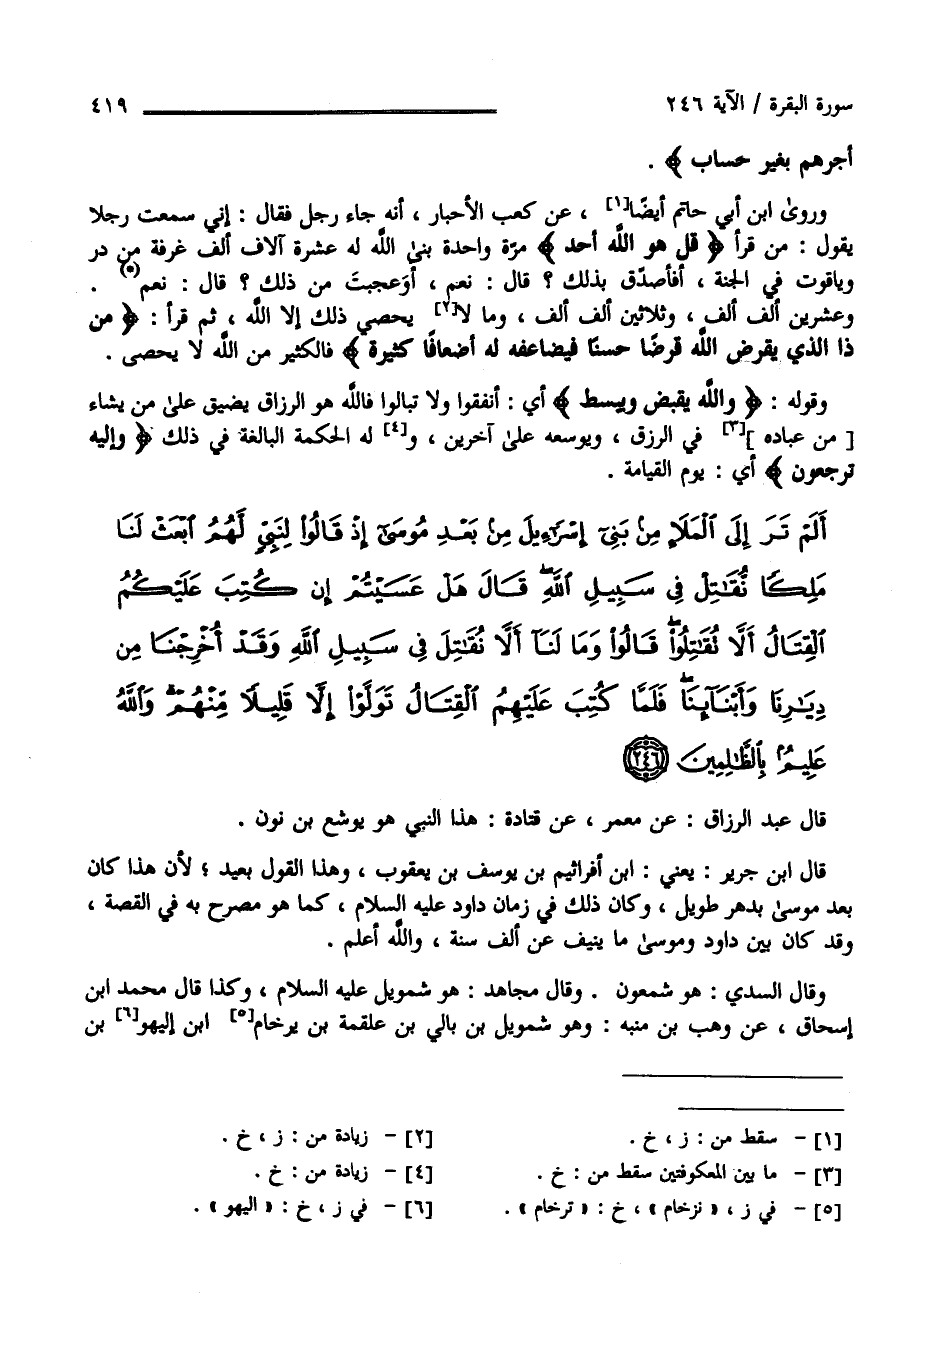 سورة البقرة / الآية ٢٤٦ ٤١٩
أجرهم بغير حساب ﴾ .
وروىٰ ابن أبي حاتم أيضًا[١] ، عن كعب الأحبار ، أنه جاء رجل فقال : إني سمعت رجلا
يقول : من قرأ ﴿ قل هو اللَّه أحد ﴾ مرّة واحدة بنىٰ اللَّه له عشرة آلاف ألف غرفة من در
وياقوت في الجنة ، أفأصدّق بذلك ؟ قال : نعم ، أوَعجبتَ من ذلك ؟ قال : نعم(٥) .
وعشرين ألف ألف ، وثلاثين ألف ألف ، وما لا[٢] يحصي ذلك إلا اللَّه ، ثم قرأ : ﴿ من
ذا الذي يقرض اللَّه قرضًا حسنًا فيضاعفه له أضعافًا كثيرة ﴾ فالكثير من اللَّه لا يحصى .
وقوله : ﴿ واللَّه يقبض ويبسط ﴾ أي : أنفقوا ولا تبالوا فاللَّه هو الرزاق يضيق علىٰ من يشاء
[ من عباده ][٣] في الرزق ، ويوسعه علىٰ آخرين ، و[٤] له الحكمة البالغة في ذلك ﴿ وإليه
ترجعون ﴾ أي : يوم القيامة .
أَلَمْ تَرَ إِلَى ٱلْمَلَإِ مِنۢ بَنِىٓ إِسْرَٰٓءِيلَ مِنۢ بَعْدِ مُوسَىٰٓ إِذْ قَالُوا۟ لِنَبِىٍّ لَّهُمُ ٱبْعَثْ لَنَا
مَلِكًا نُّقَٰتِلْ فِى سَبِيلِ ٱللَّهِۖ قَالَ هَلْ عَسَيْتُمْ إِن كُتِبَ عَلَيْكُمُ
ٱلْقِتَالُ أَلَّا تُقَٰتِلُوا۟ۖ قَالُوا۟ وَمَا لَنَآ أَلَّا نُقَٰتِلَ فِى سَبِيلِ ٱللَّهِ وَقَدْ أُخْرِجْنَا مِن
دِيَٰرِنَا وَأَبْنَآئِنَاۖ فَلَمَّا كُتِبَ عَلَيْهِمُ ٱلْقِتَالُ تَوَلَّوْا۟ إِلَّا قَلِيلًا مِّنْهُمْۗ وَٱللَّهُ
عَلِيمٌۢ بِٱلظَّٰلِمِينَ ٢٤٦
قال عبد الرزاق : عن معمر ، عن قتادة : هذا النبي هو يوشع بن نون .
قال ابن جرير : يعني : ابن أفراثيم بن يوسف بن يعقوب ، وهذا القول بعيد ؛ لأن هذا كان
بعد موسىٰ بدهر طويل ، وكان ذلك في زمان داود عليه السلام ، كما هو مصرح به في القصة ،
وقد كان بين داود وموسىٰ ما ينيف عن ألف سنة ، واللَّه أعلم .
وقال السدي : هو شمعون . وقال مجاهد : هو شمويل عليه السلام ، وكذا قال محمد ابن
إسحاق ، عن وهب بن منبه : وهو شمويل بن بالي بن علقمة بن يرخام[٥] ابن إليهو[٦] بن
[١] - سقط من : ز ، خ . [٢] - زيادة من : ز ، خ .
[٣] - ما بين المعكوفتين سقط من : خ . [٤] - زيادة من : خ .
[٥] - في ز ، « نزخام » ، خ : « ترخام » . [٦] - في ز ، خ : « اليهو » .